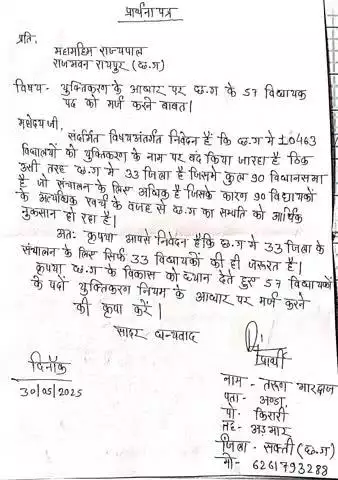 प्रार्थना पत्र
प्रति,
महामहिम राज्यपाल
राजभवन रायपुर (छ.ग)
विषय - युक्तिकरण के आधार पर छ.ग के 57 विधायक
पद को मर्ज करने बाबत।
महोदय जी,
संदर्भित विषयअंतर्गत निवेदन है कि छ.ग मे 10463
विद्यालयों को युक्तिकरण के नाम पर बंद किया जा रहा है ठिक
उसी तरह छ.ग मे 33 जिला है जिसमे कुल 90 विधानसभा
है जो संचालन के लिए अधिक है जिसके कारण 90 विधायकों
के अत्यधिक खर्चा के वजह से छ.ग का सम्पति को आर्थिक
नुकसान हो रहा है।
अतः कृपया आपसे निवेदन है कि छ.ग मे 33 जिला के
संचालन के लिए सिर्फ 33 विधायकों की ही जरूरत है।
कृपया छ.ग के विकास को ध्यान देते हुए 57 विधायकों
के पदों युक्तिकरण नियम के आधार पर मर्ज करने
की कृपा करें।
सादर धन्यवाद
प्रार्थी
दिनाँक
30/05/2025
नाम - तरूण भारद्वाज
पता - अण्डा
पो. किरारी
तह - अड़भार
जिला - सक्ती (छ.ग)
मो - 6261793288